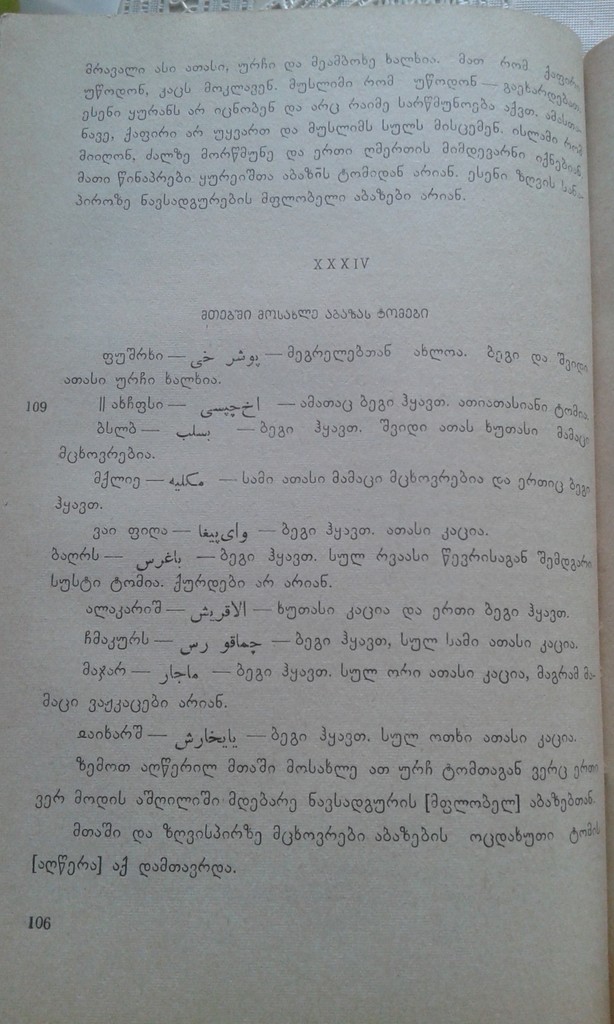 მრავალი ასი ათასი, ურჩი და მეამბოხე ხალხია. მათ რომ ქაფირი
უწოდონ, კაცს მოკლავენ. მუსლიმი რომ უწოდონ — გაეხარდებათ
ესენი ყურანს არ იცნობენ და არც რაიმე სარწმუნოება აქვთ. ამასთა-
ნავე, ქაფირი არ უყვართ და მუსლიმს სულს მისცემენ. ისლამი რომ
მიიღონ, ძალზე მორწმუნე და ერთი ღმერთის მიმდევარნი იქნებიან.
მათი წინაპრები ყურეიშთა აბაზას ტომიდან არიან. ესენი ზღვის სანა-
პიროზე ნავსადგურების მფლობელი აბაზები არიან.
XXXIV
მთებში მოსახლე აბაზას ტომები
ფუშრხი — پوشر خی — მეგრელებთან ახლოა. ბეგი და შვიდი
ათასი ურჩი ხალხია.
109 || ახჩფსი — اخ‌چپسی — ამათაც ბეგი ჰყავთ. ათიათასიანი ტომია
ბსლბ — بسلب — ბეგი ჰყავთ. შვიდი ათას ხუთასი მამაცი
მცხოვრებია.
მქლიე — مکلیه — სამი ათასი მამაცი მცხოვრებია და ერთიც ბეგი
ჰყავთ.
ვაი ფიღა — وای‌پیغا — ბეგი ჰყავთ. ათასი კაცია.
ბაღრს — باغرس — ბეგი ჰყავთ. სულ რვაასი წევრისაგან შემდგარი
სუსტი ტომია. ქურდები არ არიან.
ალაკარიშ — الاقریش — ხუთასი კაცია და ერთი ბეგი ჰყავთ.
ჩმაკურს — چماقو رس — ბეგი ჰყავთ, სულ სამი ათასი კაცია.
მაჯარ — ماجار — ბეგი ჰყავთ. სულ ორი ათასი კაცია, მაგრამ მა-
მაცი ვაჟკაცები არიან.
ჲაიხარშ — یایخارش — ბეგი ჰყავთ. სულ ოთხი ათასი კაცია.
ზემოთ აღწერილ მთაში მოსახლე ათ ურჩ ტომთაგან ვერც ერთი
ვერ მოდის აშღილიში მდებარე ნავსადგურის [მფლობელ] აბაზებთან.
მთაში და ზღვისპირზე მცხოვრები აბაზების ოცდახუთი ტომის
[აღწერა] აქ დამთავრდა.
106